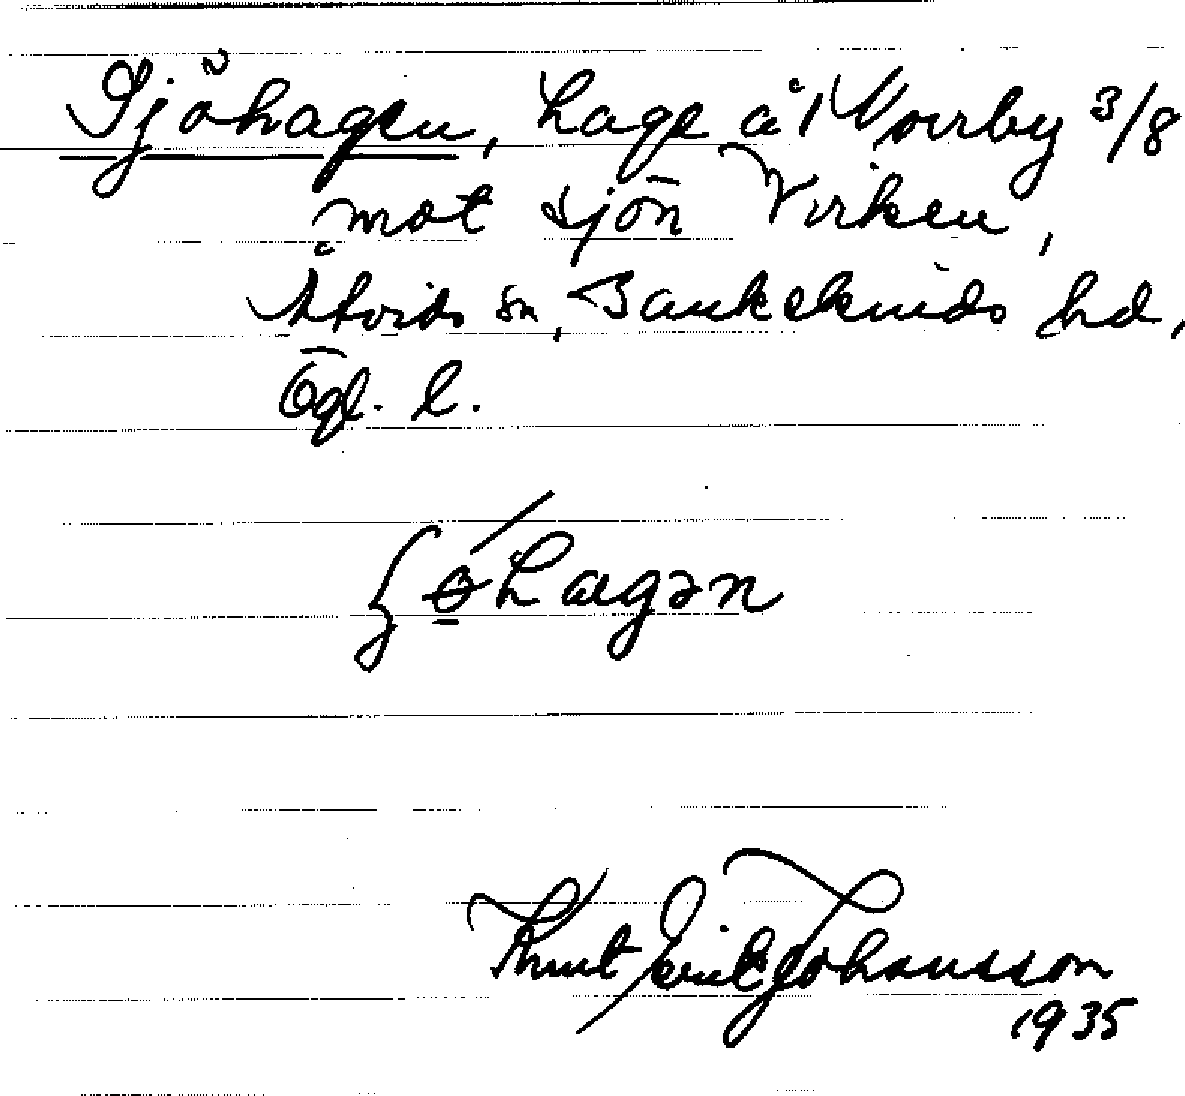 Sjöhagen, hage å Norrby 3/8
mot sjön Virken,
Åtvids sn, Bankekinds hd,
Ögl. l.
hagən
Knut Erik Johansson
1935